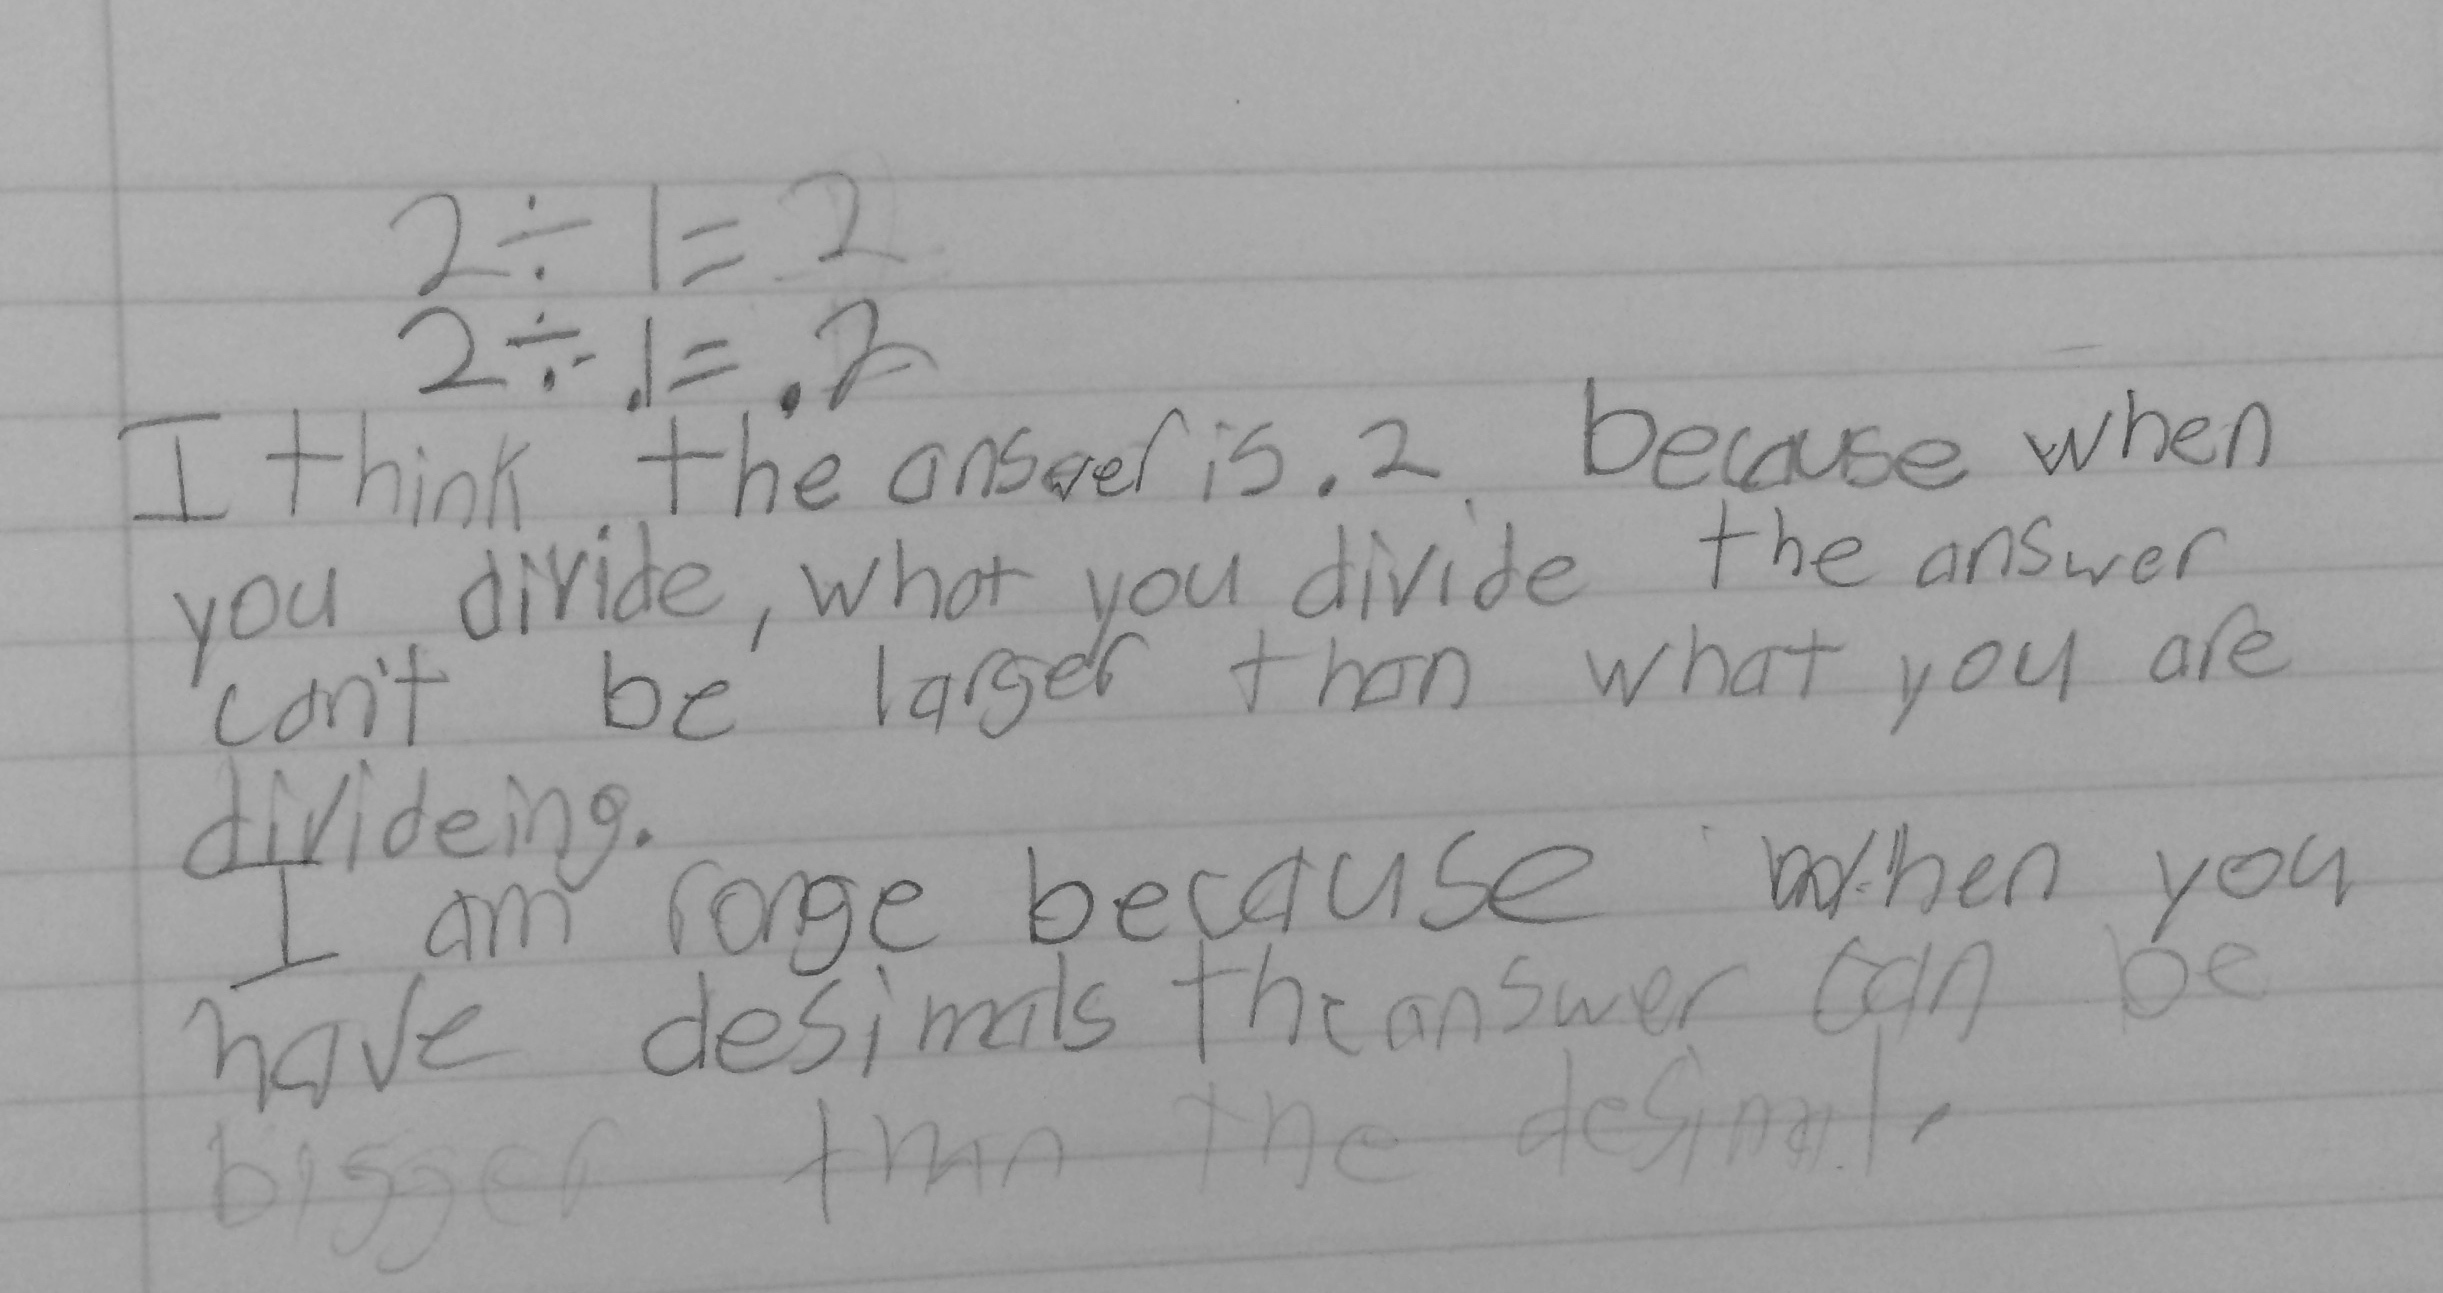 2 ÷ 1 = 2
2 ÷ .1 = .2
I think the answer is .2 because when
you divide, what you divide the answer
can't be larger than what you are
divideing.
I am ronge because when you
have desimals the answer can be
bigger than the desimal.